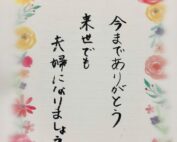 今までありがとう
来世でも
夫婦になりましょう